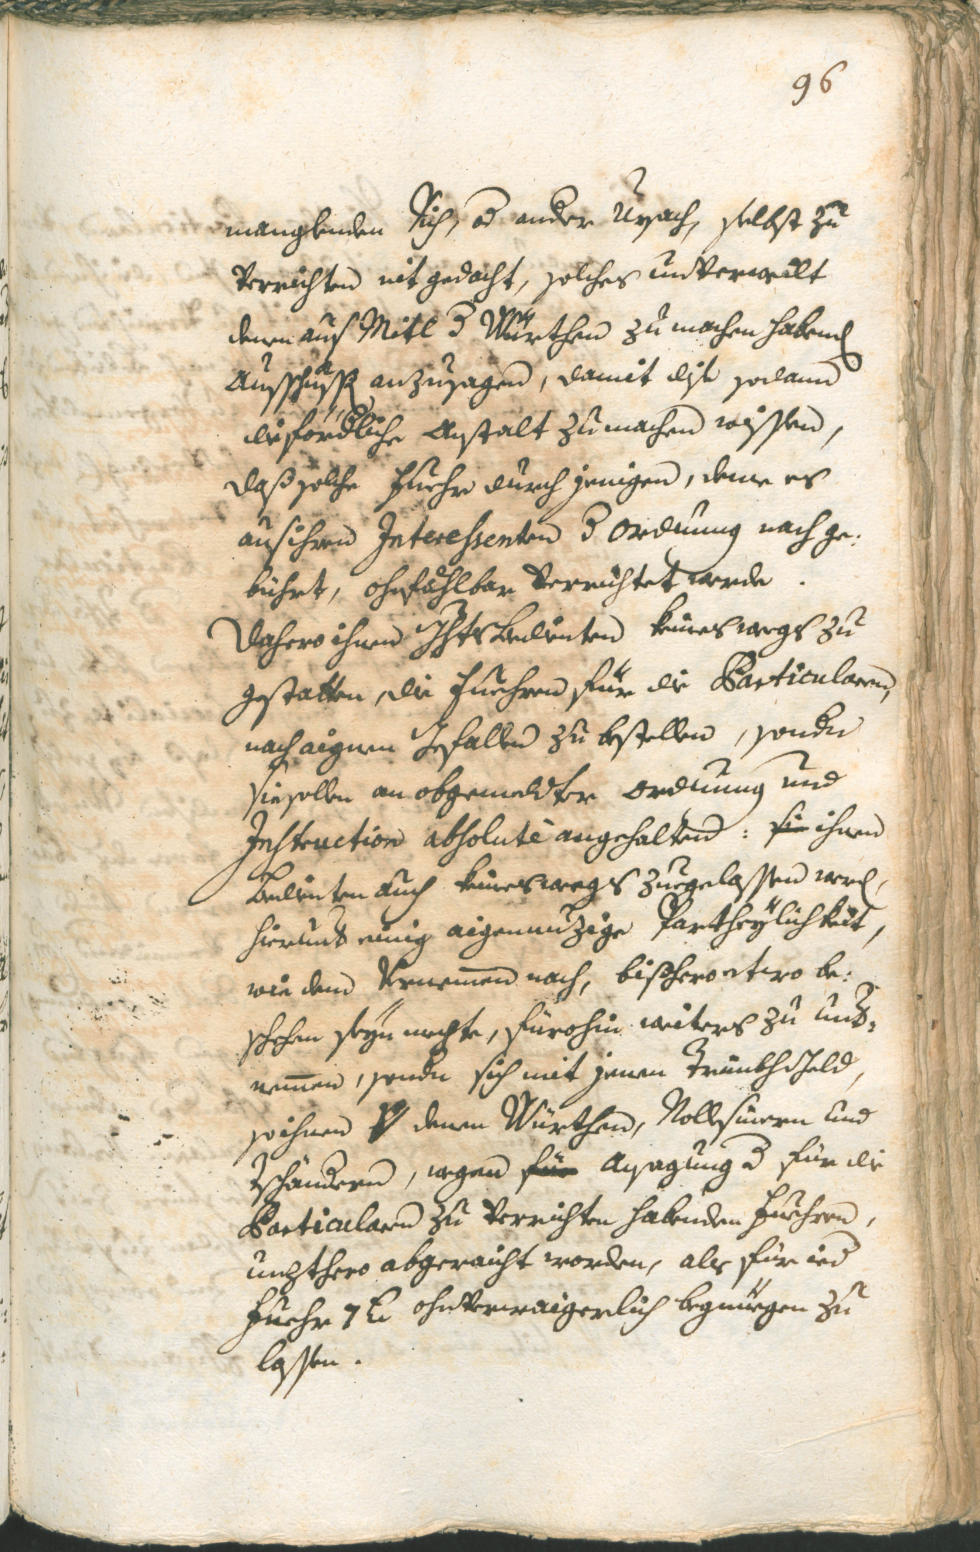 96
manglenden Vich, od ander Ursach, selbst zu
Verrichten nit gedacht, solches unverweilt
denen aus Mitl d Würthen zu machen habend
Ausschuß anzusagen, damit dise sodann
die fördliche Anstalt zu machen wissen,
daß solche Fuehr durch jenigen, deme es
aus ihren Interessenten d Ordnung nach ge:
bührt, ohnfählbar Verrichtet werde.
Dahero ihnen Bedienten keineswegs zu
gestatten, die Fuehren für die Particularen,
nach aignem Gefallen zu bestellen, sondn
sie sollen an obgemeldter Ordnung und
Instruction absolutè angehalten: ihnen
Bedienten auch keineswegs zuegelassen werd,
hierunt einig aigennuzige Partheylichkeit,
wie dem Vernemmen nach, bißhero be:
schehen seyn mechte, fürohin weiters zu unt:
nemmen, sondn sich mit jenen Trünkhgeld,
so ihnen denen Würthen, Rollfuerern und
Tschandern, wegen Ansagung d für die
Particularn zu Verrichten habenden Fuehren,
unzthero abgeraicht worden, als für ied
Fuehr 7 ohnVerwaigerlich begnüegen zu
lassen.